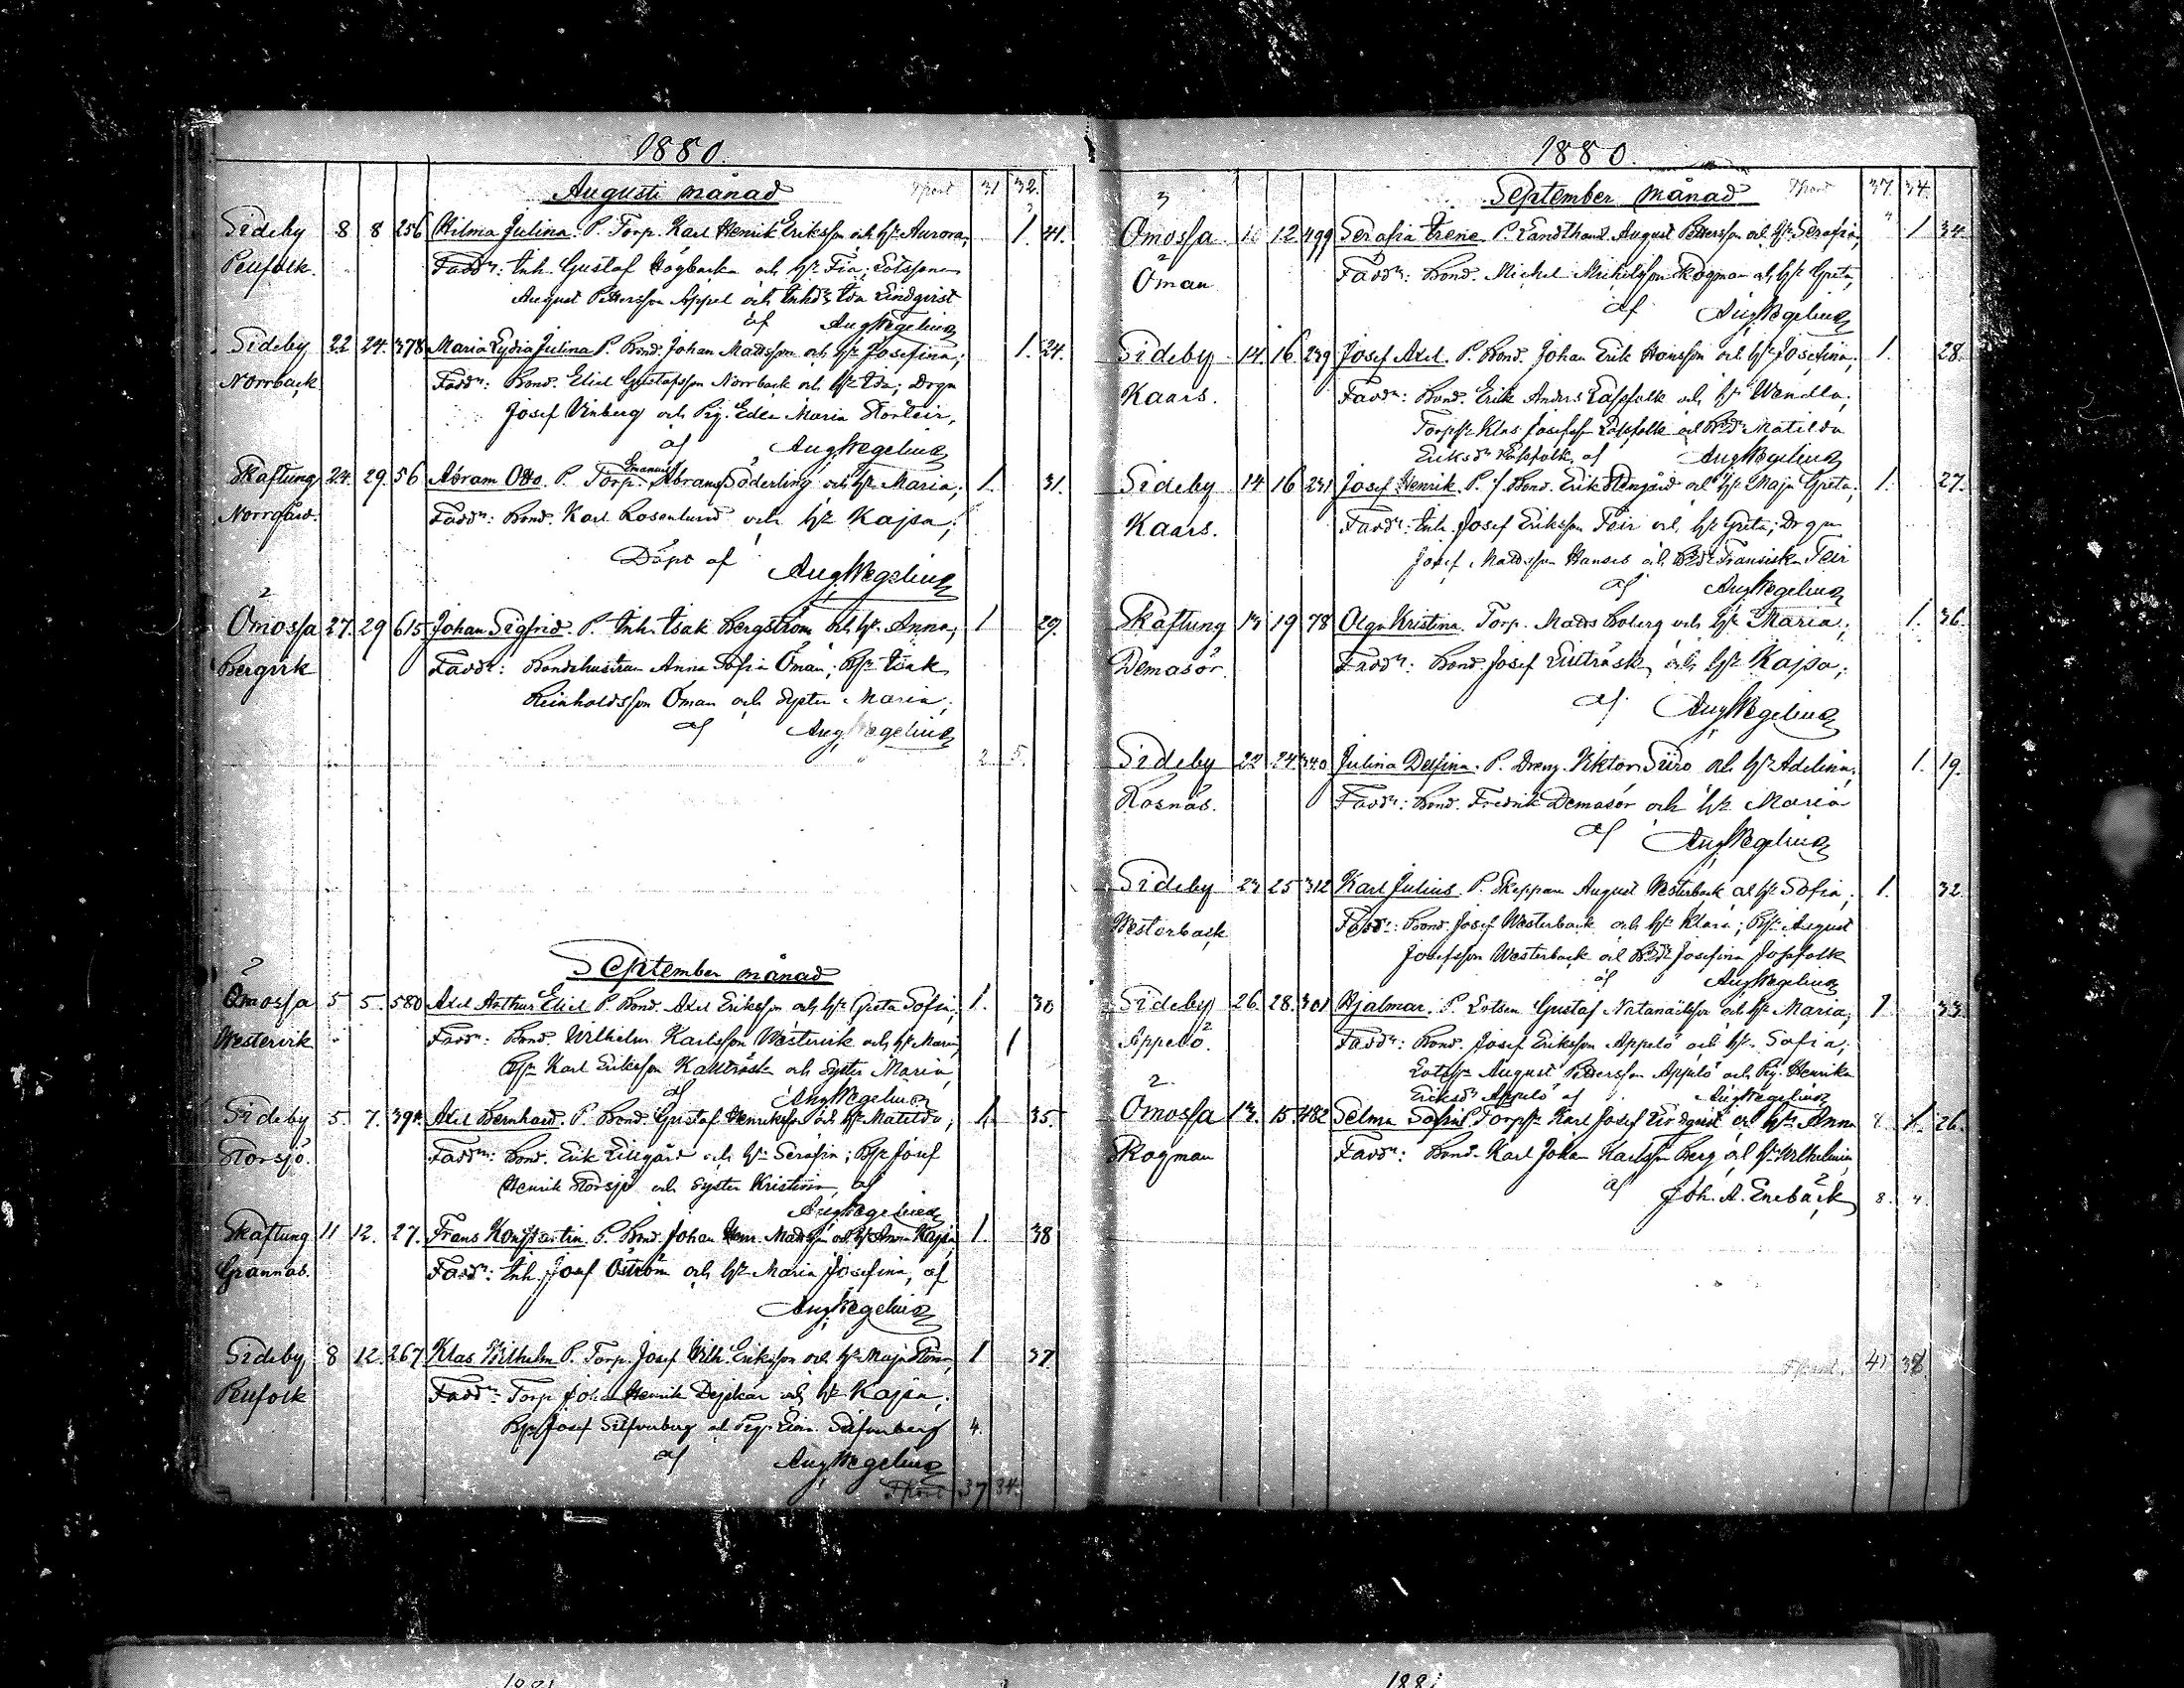 1880.
Augusti månad Tport 31 32.
Sideby 8 8 256 Hilma Julina. P. Torp. Karl Henrik Eriksson och h:r Aurora; 1. 41.
Penfolk. Fadd:r: Inh. Gustaf Högbacka och h:r Fia; Lotssonen
August Pettersson Appel och Inhd:r Ida Lindqvist
af Aug Wegelius
Sideby 22 24. 378 Maria Lydia Julina P. Bond. Johan Mattsson och h:r Josefina; 1. 24.
Norrback Fadd:r: Bond. Eliel Gustafsson Norrback och h:r Ida; Drgn
Josef Vinberg och Pig. Edla Maria Storteir,
af Aug Wegelius
Skaftung 24. 29. 56 Abram Otto. P. Torp. Emanuel Abramss. Söderling och h:r Maria; 1. 31.
Norrgård. Fadd:r: Bond. Karl Rosenlund och h:r Kajsa;
Döpt af Aug Wegelius
Ömossa 27. 29 615 Johan Sigfrid. P. Inh. Isak Bergström och h:r Anna; 1 29.
Bergvik Fadd:r: Bondehustrun Anna Sofia Öman; Bs:n Isak
Reinholdsson Öman och syster Maria;
af Aug Wegelius
2. 5.
September månad
Ömossa 5 5. 580 Axel Arthur Eliel P. Bond. Axel Eriksson och h:r Greta Sofia; 1. 30
Westervik Fadd:r: Bond. Wilhelm Karlsson Westervik och h:r Maria; 1
Bs:n Karl Eriksson Kallträsk och syster Maria,
af Aug Wegelius
Sideby 5. 7. 391. Axel Bernhard. P. Bond. Gustaf Henriksson och h:r Matilda; 1. 35.
Storsjö. Fadd:r: Bond. Erik Lillgård och h:r Serafia; Bs:n Josef
Henrik Storsjö och syster Kristina, af
Aug Wegelius
Skaftung 11 12. 27. Frans Konstantin. P. Bond. Johan Henr. Mattsson och h:r Anna Kajsa; 1. 38
Grannäs. Fadd:r: Inh. Josef Öström och h:r Maria Josefina, af
Aug Wegelius
Sideby 8 12. 267 Klas Wilhelm P. Torp. Josef Wilh. Eriksson och h:r Maja 1 37
Penfolk Fadd:r Torp. Johan Henrik och h:r Kajsa;
Bs:n Josef Silfverberg och Pig. Silfverberg 4.
af Aug Wegelius
Tport 37 34.
1880.
September månad Tport 37. 34.
Ömossa 12 499 Serafia Irene. P. Landthand. August Pettersson och h:r Serafia; " 1 34
Öman Fadd:r: Bond. Mickel Mickelsson Skogman och h:r Greta,
af Aug Wegelius
Sideby 14. 16. 239 Josef Axel. P. Bond. Johan Erik Hansson och h:r Josefina; 1. 28.
Kaars. Fadd:r: Bond. Erik Anders Lassfolk och h:r Wendla;
Torps:n Klas Josefsson Lassfolk och Bd:r Matilda
Eriksd:r Lassfolk, af Aug Wegelius
Sideby 14 16 231 Josef Henrik. P. f. Bond. Erik och h:r Maja Greta; 1. 27.
Kaars. Fadd:r: Inh. Josef Eriksson Teir och h:r Greta; Drgn
Josef Mattsson Hanses och Bd:r Fransiska Teir
af Aug Wegelius
Skaftung 19 78 Olga Kristina. Torp. Matts Boberg och h:r Maria; 1. 36.
Demasör. Fadd:r: Bond. Josef Lillträsk och h:r Kajsa;
af Aug Wegelius
Sideby 22 24. 340 Julina Delfina. P. Dreng. Viktor Siiro och h:r Adelina; 1. 19.
Rosnäs. Fadd:r: Bond. Fredrik Demasör och h:r Maria
af Aug Wegelius
Sideby 23 25 312 Karl Julius. P. Skeppare August Westerback och h:r Sofia; 1. 32.
Westerback Fadd:r: Bond. Josef Westerback och h:r Klara; Bs:n August
Josefsson Westerback och Bd:r Josefina Jossfolk
af Aug Wegelius
Sideby 26. 28. 301 Hjalmar. P. Lotsen Gustaf Natanaelsson och h:r Maria; 1 33.
Appelö. Fadd:r: Bond. Josef Eriksson Appelö och h:r Sofia;
Lots:n August Pettersson Appelö och Pig. Henrika
Eriksd:r Appelö af Aug Wegelius
Ömossa 13. 15. 482 Selma Sofia. Torps:n Karl Josef Lindqvist och h:r Anna 1. 26.
Skogman Fadd:r: Bond. Karl Johan Karlsson Berg och h:r Wilhelmina
af Joh. A. Enebäck 8. 4.
Tport. 41 38
1881
1881